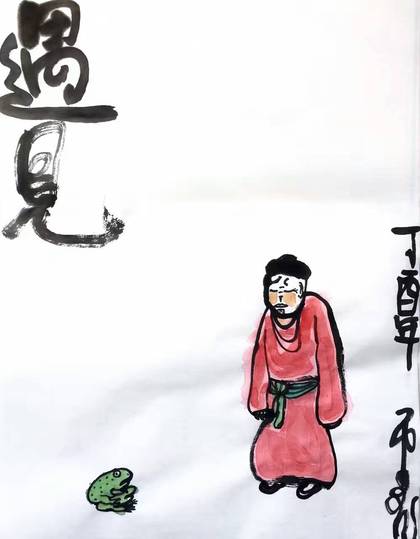 遇见
丁酉年